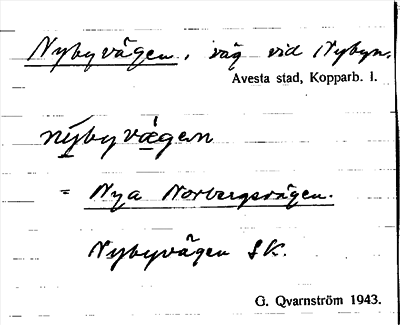 Nybyvägen, väg vid Nybyn.
Avesta stad, Kopparb. l.
nýbyvä̀gen
= Nya Norbergsvägen.
Nybyvägen SK.
G. Qvarnström 1943.